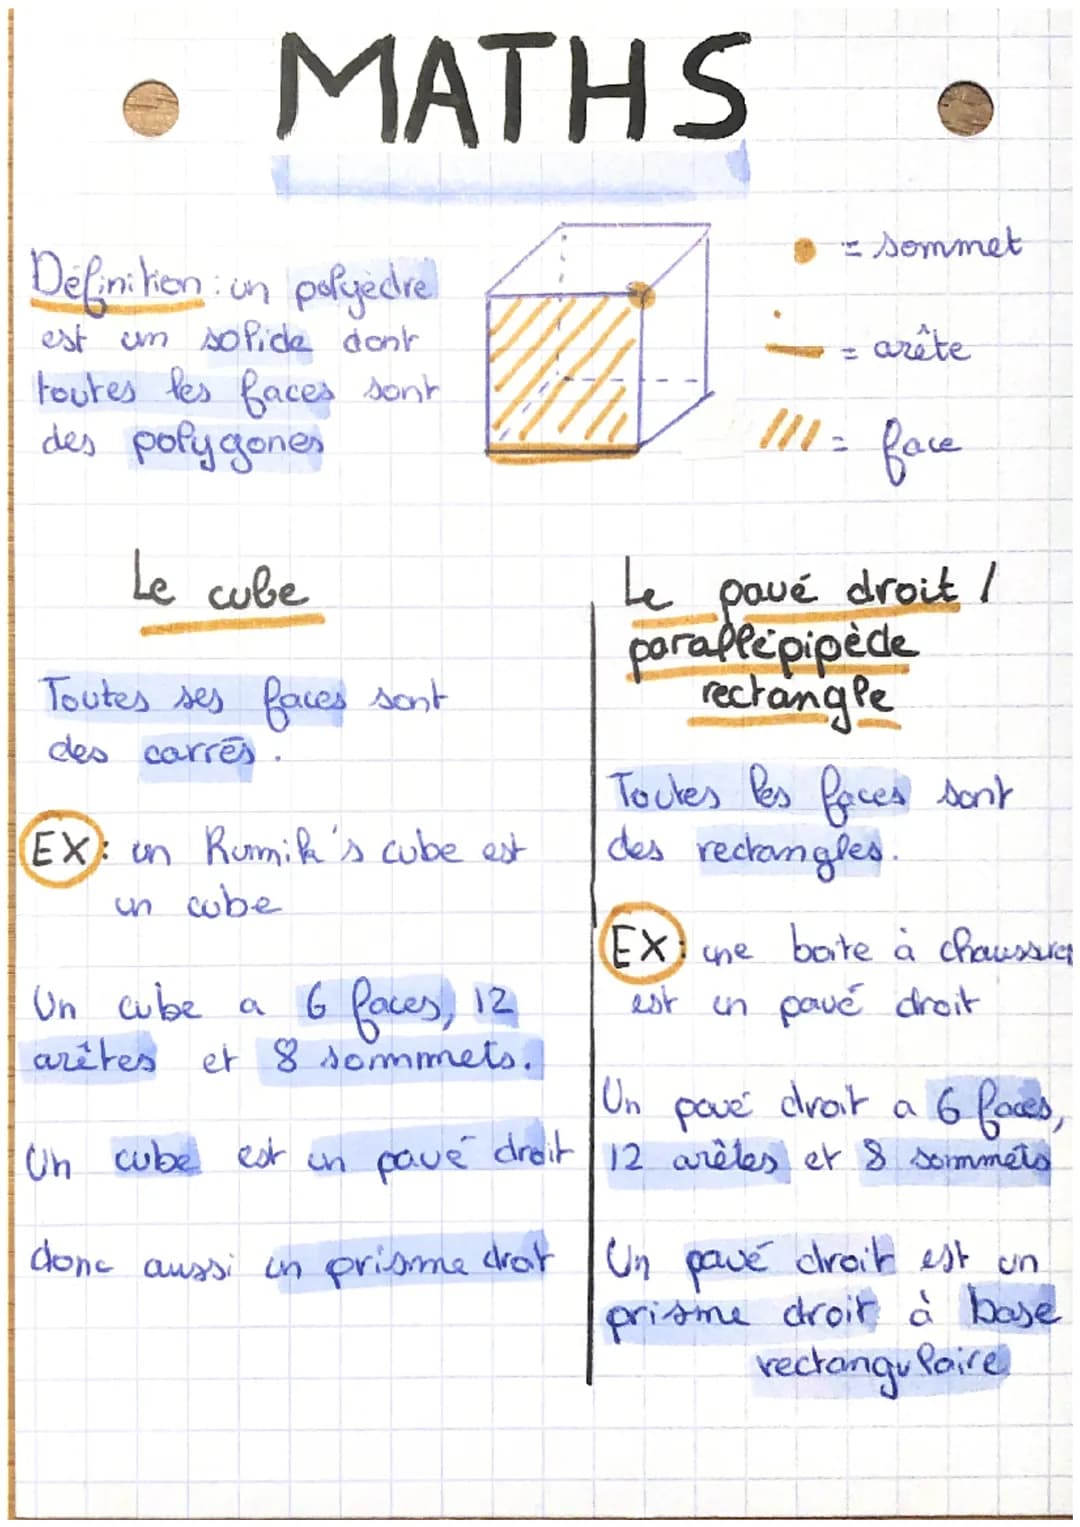 MATHS
Définition : un polyèdre
est un solide dont
toutes les faces sont
des polygones
= sommet
= arête
= face
Le cube
Toutes ses faces sont
des carrés.
EX : un Rumik's cube est
un cube
Un cube a 6 faces, 12
arêtes et 8 sommmets.
Un cube est un pavé droit
donc aussi un prisme droit
Le pavé droit /
parallépipède
rectangle
Toutes les faces sont
des rectangles.
EX : une boite à chaussures
est un pavé droit
Un pavé droit a 6 faces,
12 arêtes et 8 sommmets
Un pavé droit est un
prisme droit à base
rectangulaire